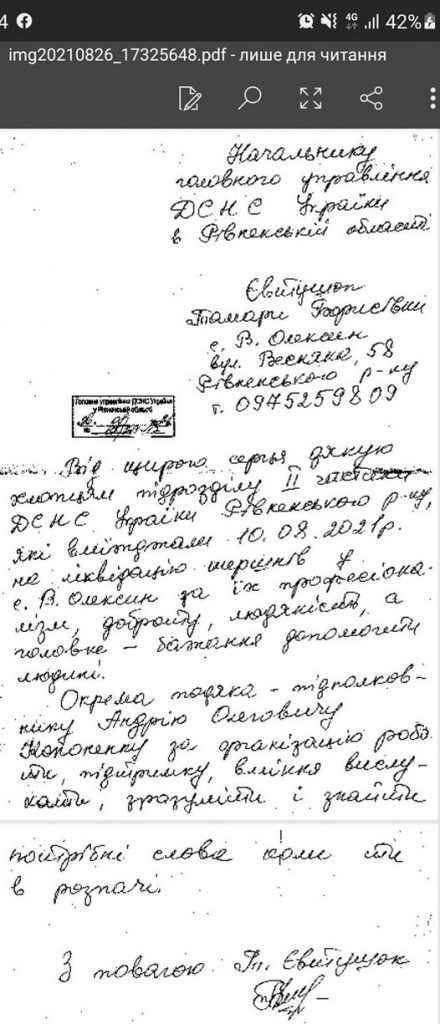 4G 42%
img20210826_17325648.pdf - лише для читання
Начальнику
головного управління
ДСНС України
в Рівненській області
Євтушок
Тамари Борисівни
с. В. Олексин
вул. Весняна, 58
Рівненського р-ну
т. 0975259809
Головне управління ДСНС України
у Рівненській області
Від щирого серця дякую
хлопцям підрозділу ІІ частини
ДСНС України Рівненського р-ну,
які виїжджали 10.08.2021р.
на ліквідацію шершнів у
с. В. Олексин за їх професіона-
лізм, доброту, людяність, а
головне – бажання допомогти
людині.
Окрема подяка – підполков-
нику Андрію Олеговичу
Кононенку за організацію робо-
ти, підтримку, вміння вислу-
хати, зрозуміти і знайти
потрібні слова коли ти
в розпачі.
З повагою Євтушок